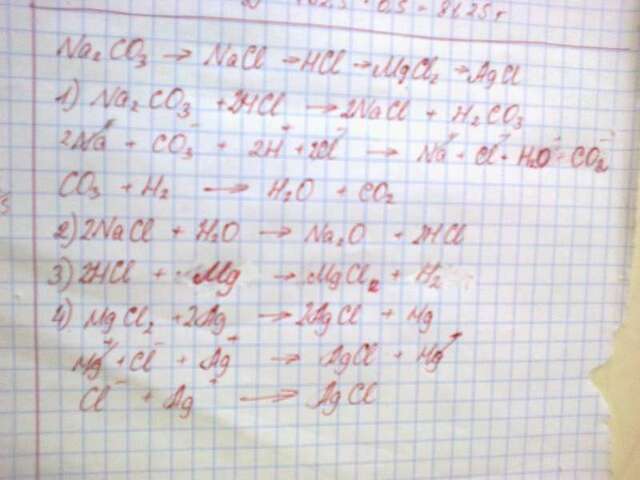 02,5 · 0,5 = 81,25 г
Na₂CO₃ → NaCl → HCl → MgCl₂ → AgCl
1) Na₂CO₃ + 2HCl → 2NaCl + H₂CO₃
2Na⁺ + CO₃⁻ + 2H⁺ + 2Cl⁻ → Na⁺ + Cl⁻ + H₂O + CO₂
CO₃ + H₂ → H₂O + CO₂
2) 2NaCl + H₂O → Na₂O + 2HCl
3) 2HCl + Mg → MgCl₂ + H₂
4) MgCl₂ + 2Ag → 2AgCl + Mg
Mg⁺ + Cl⁻ + Ag⁺ → AgCl + Mg⁺
Cl⁻ + Ag⁺ → AgCl